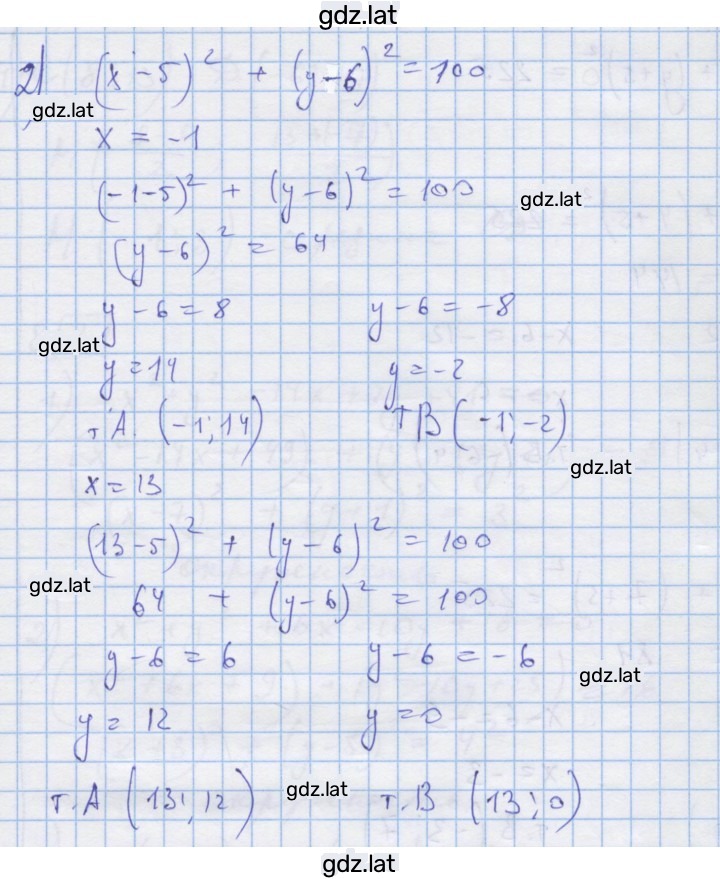 gdz.lat
2) (x-5)² + (y-6)² = 100
gdz.lat
x = -1
(-1-5)² + (y-6)² = 100
gdz.lat
(y-6)² = 64
y-6 = 8 y-6 = -8
gdz.lat
y = 14 y = -2
т А. (-1; 14) т В (-1; -2)
gdz.lat
x = 13
(13-5)² + (y-6)² = 100
gdz.lat
64 + (y-6)² = 100
y-6 = 6 y-6 = -6
gdz.lat
y = 12 y = 0
gdz.lat
т. А (13; 12) т. В (13; 0)
gdz.lat